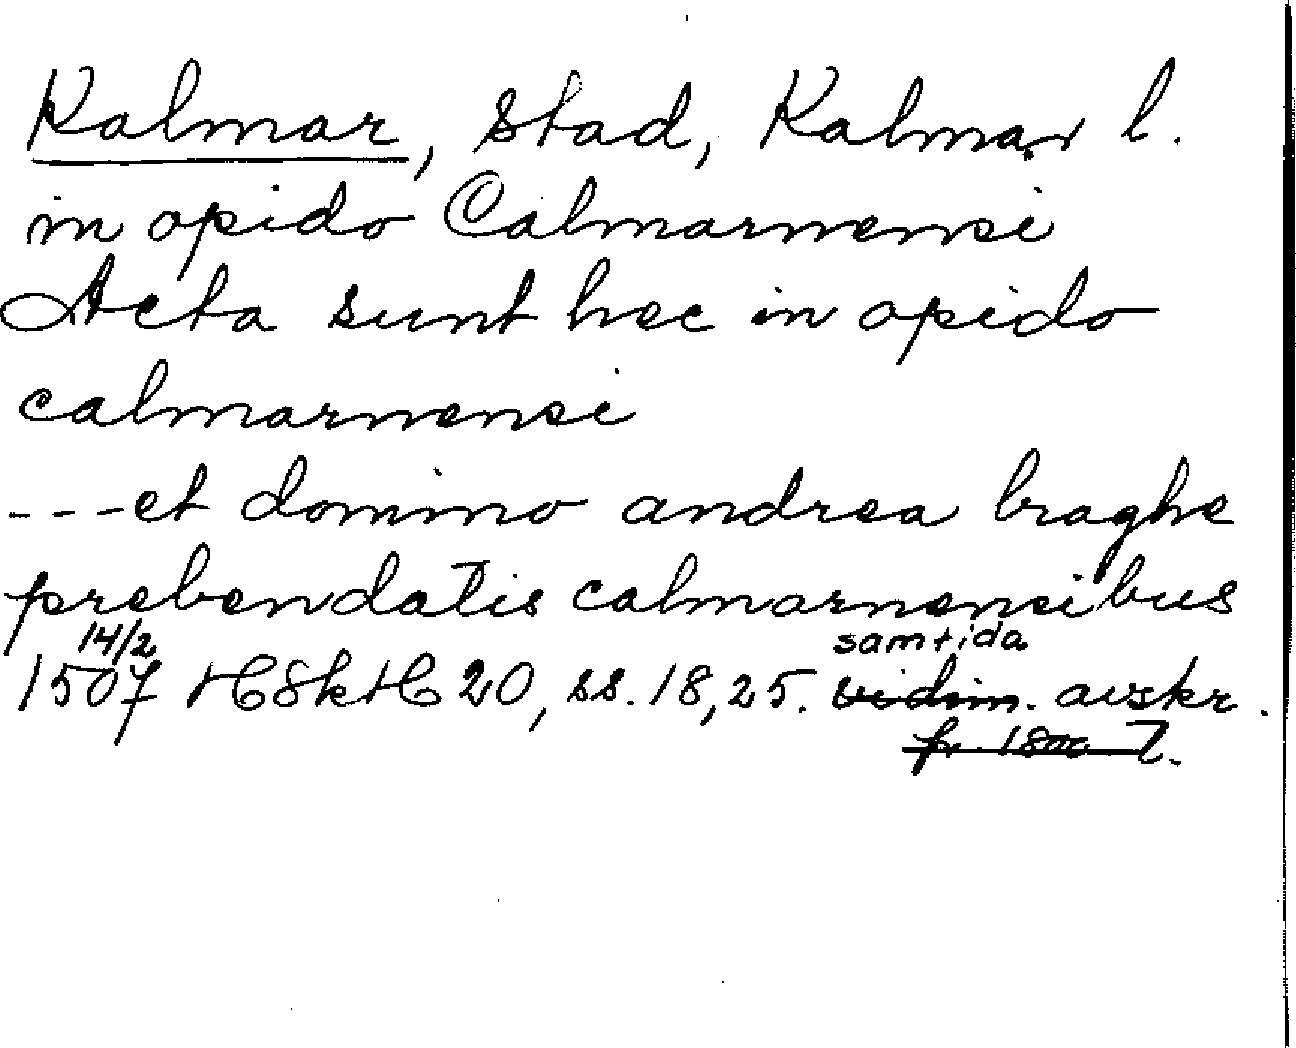 Kalmar, stad, Kalmar l.
in opido Calmarnensi
Acta sunt hec in opido
calmarnensi
---et domino andrea braghe
prebendatis calmarnensibus
14/2 samtida
1507 HSkH 20, ss. 18, 25. vidim. avskr.
fr. 1800 t.